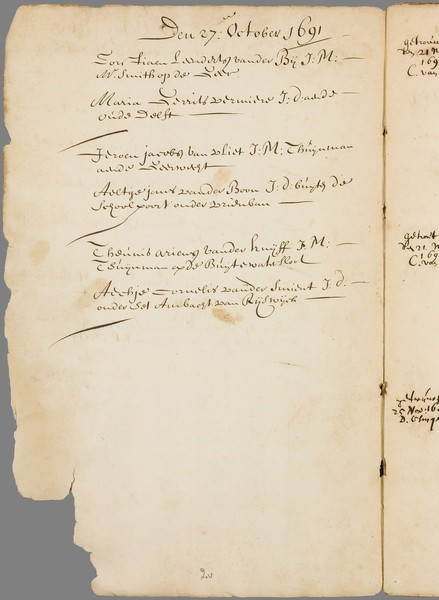 Den 27en October 1691
Cornelis Leenderts vander Bij J: M:
Mr. Smith op de Geer
Maria Gerrits vermiere J: d: aende
oude Delft
Jeroen jacobs van vliet J: M: Thuijnman
aende Geerwegt
Aeltge jans vander Boon J: d: buijte de
School poort onder vrienban
Theunis ariens vander kruijff J: M:
Thuijnman op de Buijtewatersloot
Aechje Cornelis vander Smient J: d:
onder Het Ambacht van Rijswijck
getrouwt
21 N
169
C. van
getrout
21. N
169
C. van
getrouwt
25 Nov: 16
D.